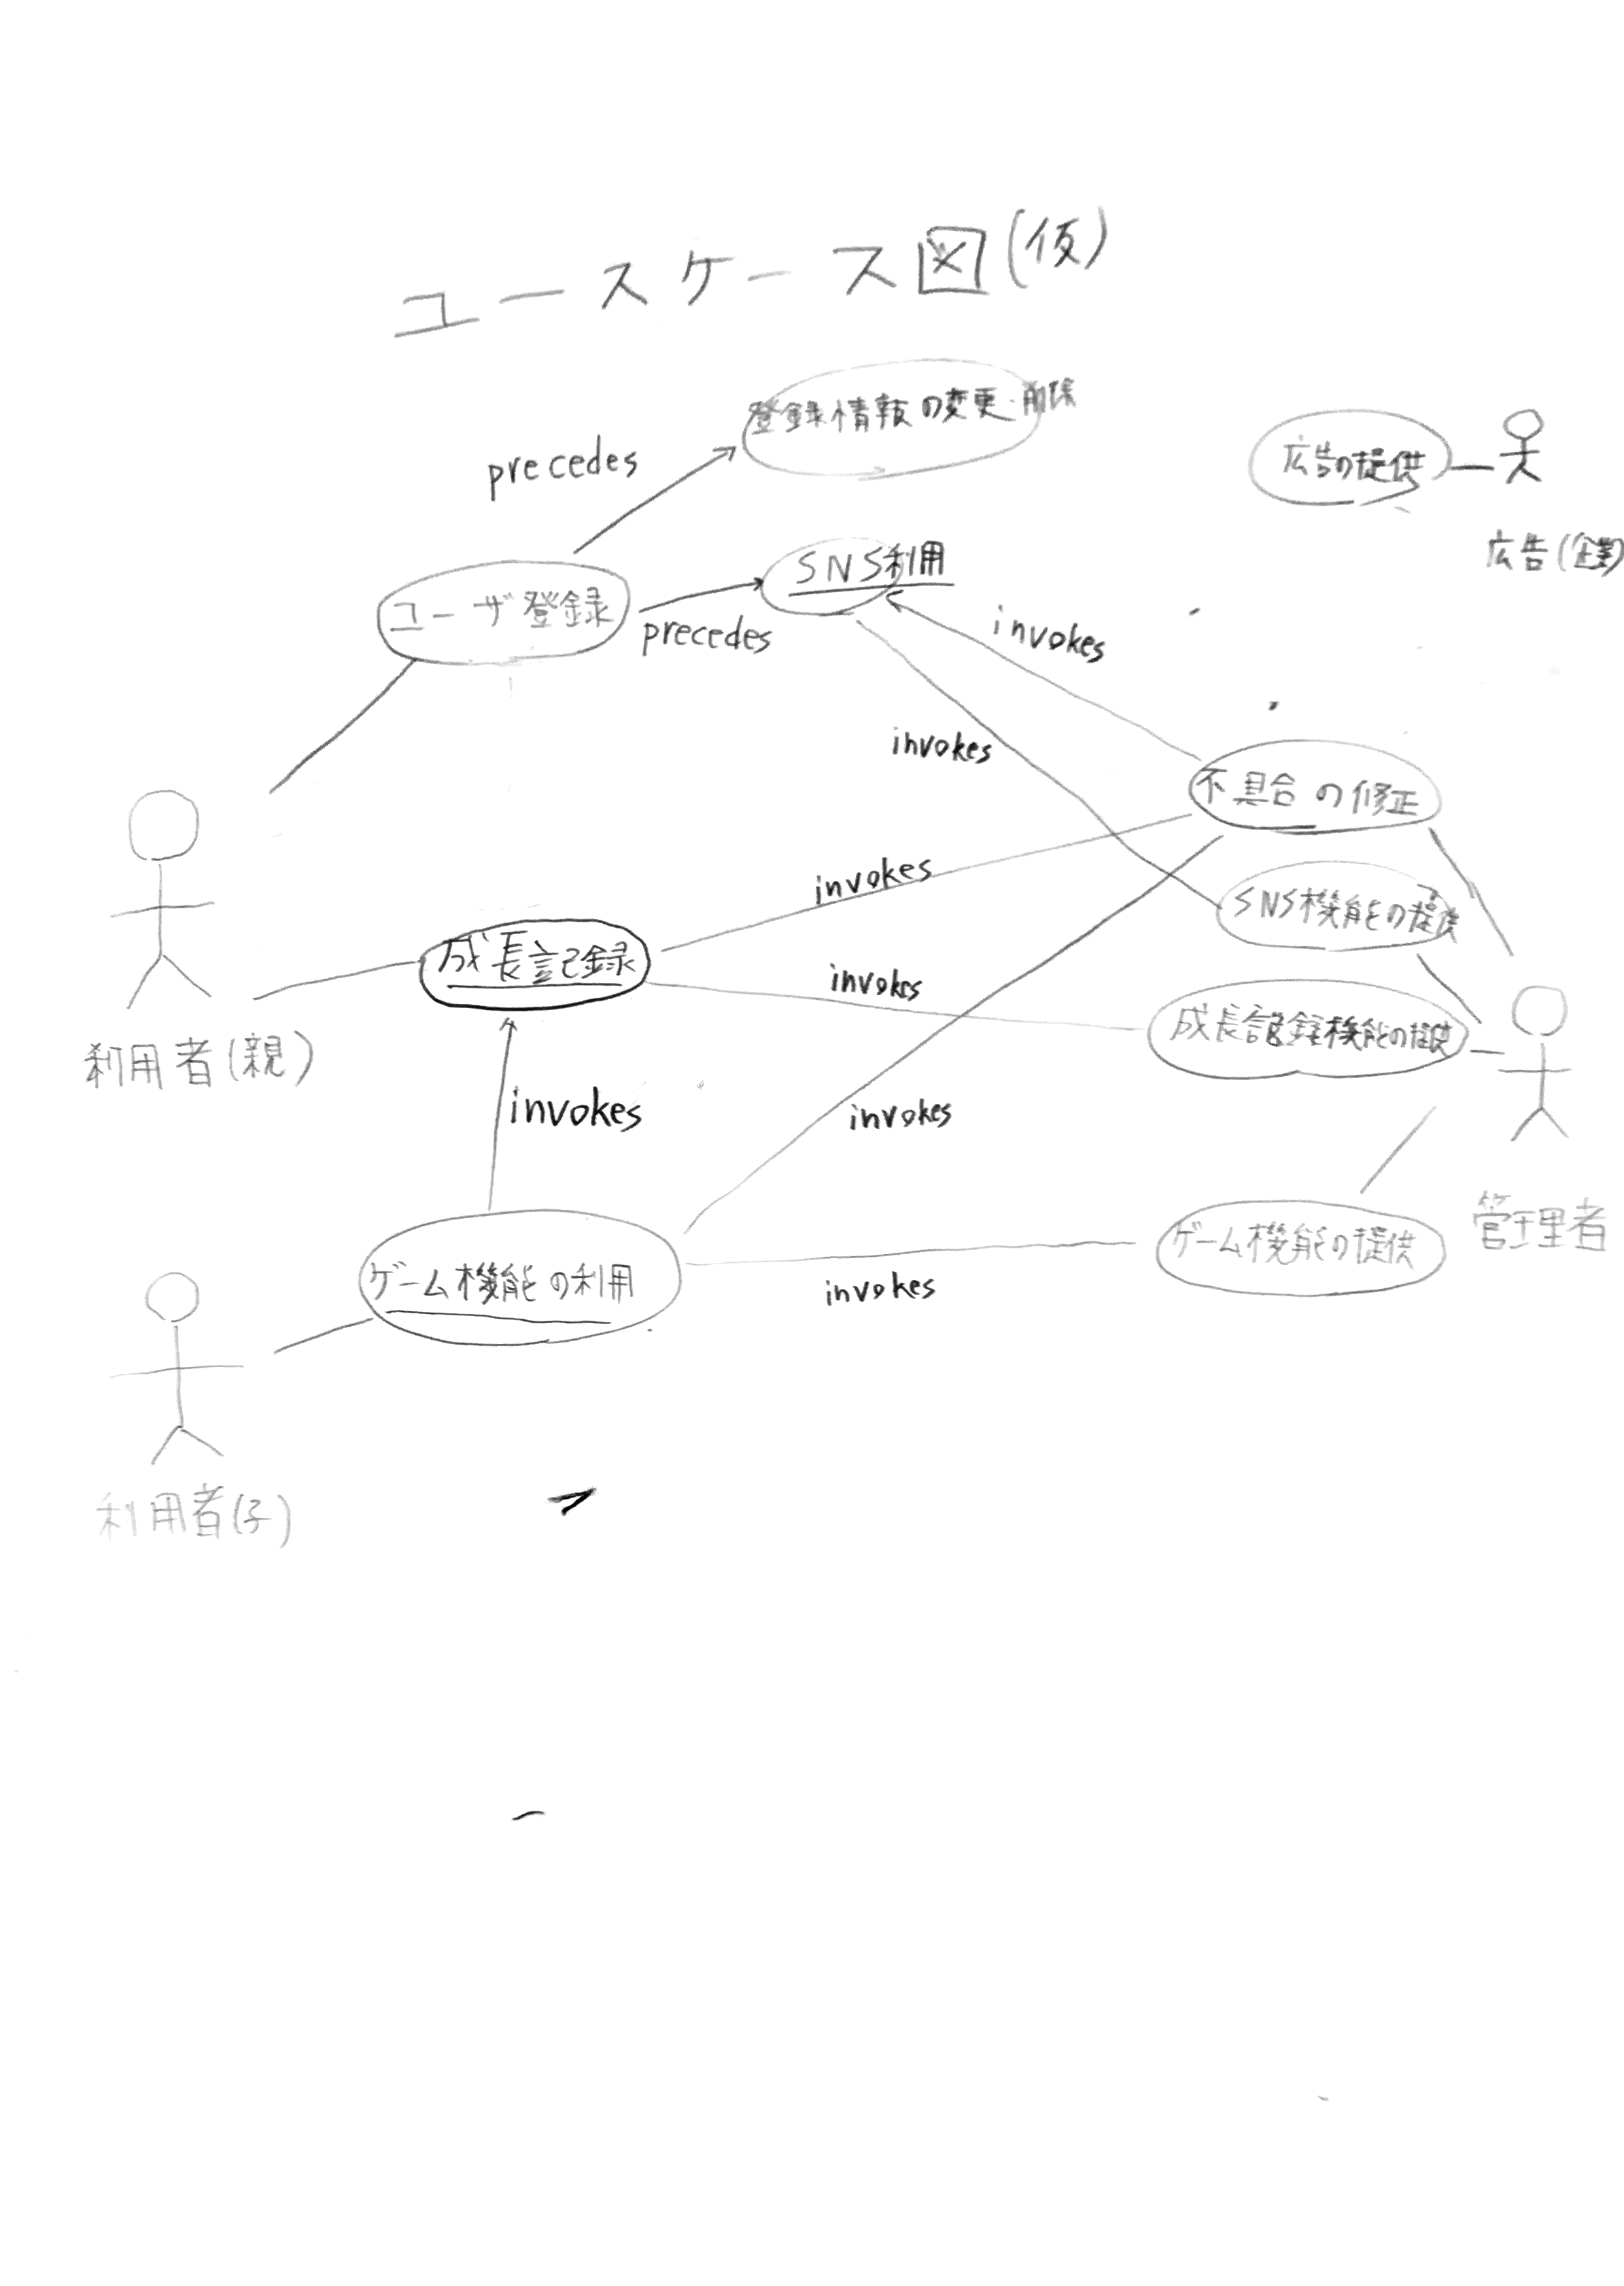 ユースケース図(仮)
登録情報の変更・削除
precedes
広告の提供
広告(企業)
SNS利用
ユーザ登録
precedes
invokes
invokes
不具合の修正
invokes
SNS機能の提供
成長記録
invokes
成長記録機能の提供
利用者(親)
invokes
invokes
管理者
ゲーム機能の提供
ゲーム機能の利用
invokes
利用者(子)